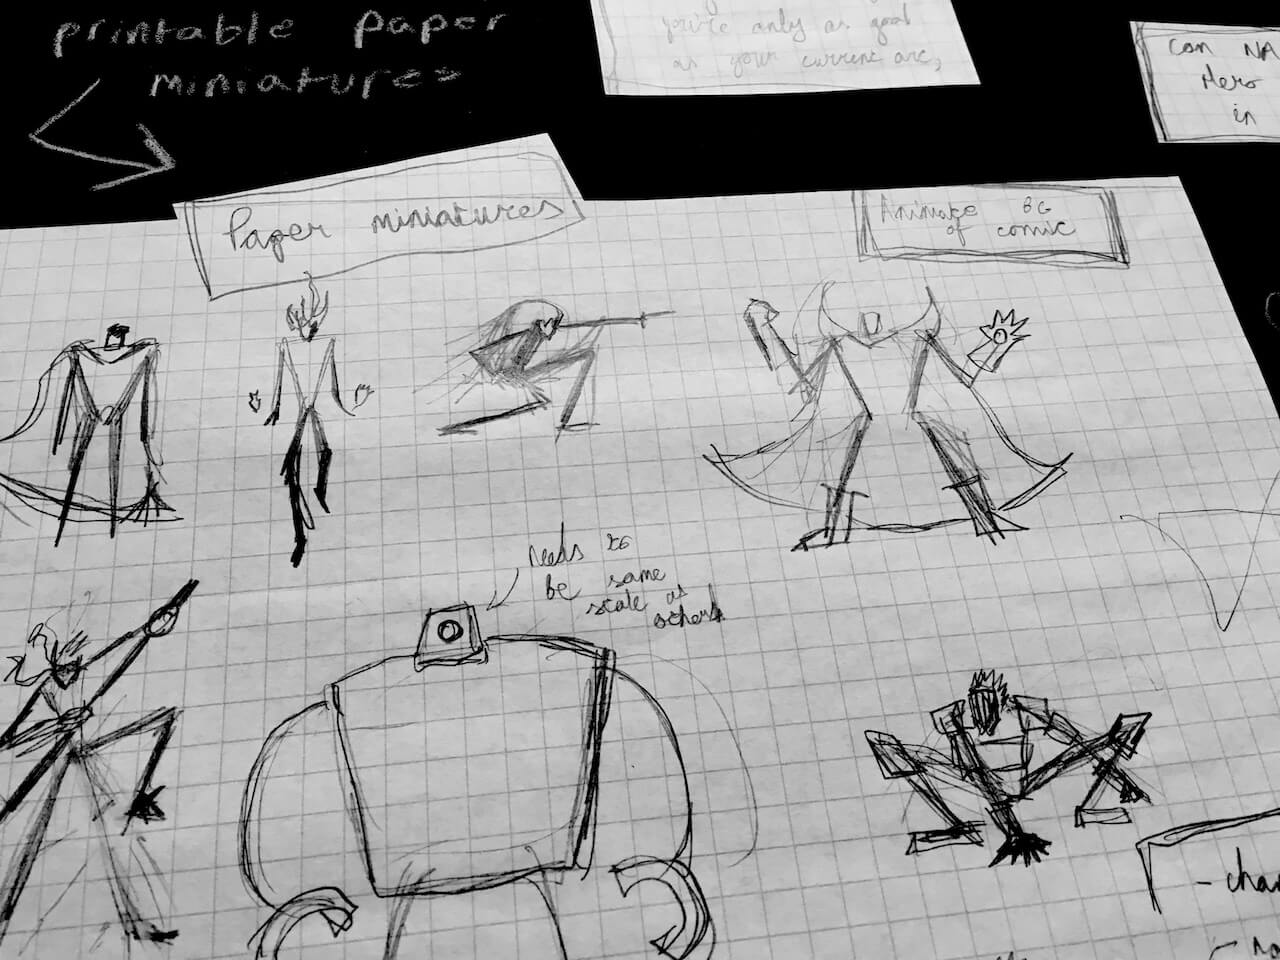 printable paper
miniatures
you're only as good
as your current arc,
can NA
Hero
in
Paper miniatures
Animate BG
of comic
needs to
be same
scale as
others
- cha